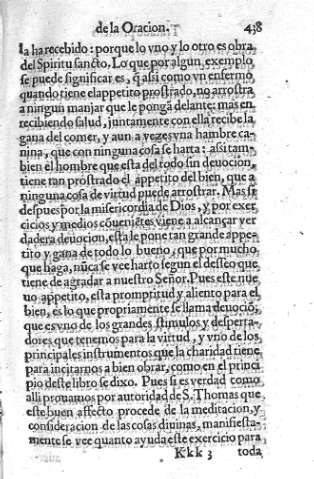 de la Oracion. 438
la ha recebido : porque lo vno y lo otro es obra
del Spiritu sancto. Lo que por algun, exemplo
se puede significar es, q̃ asi como vn enfermo
quando tiene el appetito prostrado, no arrostra
a ningun manjar que le pongã delante: mas en
recibiendo salud, juntamente con ella recibe la
gana del comer, y aun a vezes vna hambre ca-
nina, que con ninguna cosa se harta: asi tam-
bien el hombre que esta del todo sin deuocion,
tiene tan prostrado el appetito del bien, que a
ninguna cosa de virtud puede arrostrar. Mas si
despues por la misericordia de Dios, y por exer
cicios y medios cõuenientes viene a alcançar ver
dadera deuocion, esta le pone tan grande appe-
tito y gana de todo lo bueno, que por mucho
que haga, nũca se vee harto segun el desseo que
tiene de agradar a nuestro Señor. Pues este nue
uo appetito, esta promptitud y aliento para el
bien, es lo que propriamente se llama deuociõ,
que es vno de los grandes stimulos y desperta-
dores que tenemos para la virtud, y vno de los
principales instrumentos que la charidad tiene
para incitarnos a bien obrar, como en el princi
pio deste libro se dixo. Pues si es verdad como
alli prouamos por autoridad de S. Thomas que
este buen affecto procede de la meditacion, y
consideracion de las cosas diuinas, manifiesta-
mente se vee quanto ayuda este exercicio para
Kkk 3 toda